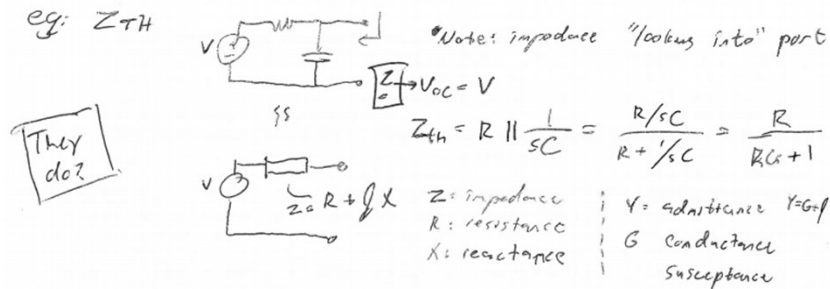 eg: Z_TH
V
*Note: impedance "looking into" port
Z → V_OC = V
Z_th = R || 1/sC = (R/sC)/(R + 1/sC) = R/(RCs + 1)
They
do?
V
Z = R + jX
Z = impedance
R: resistance
X: reactance
Y = admittance Y=G+j
G conductance
susceptance